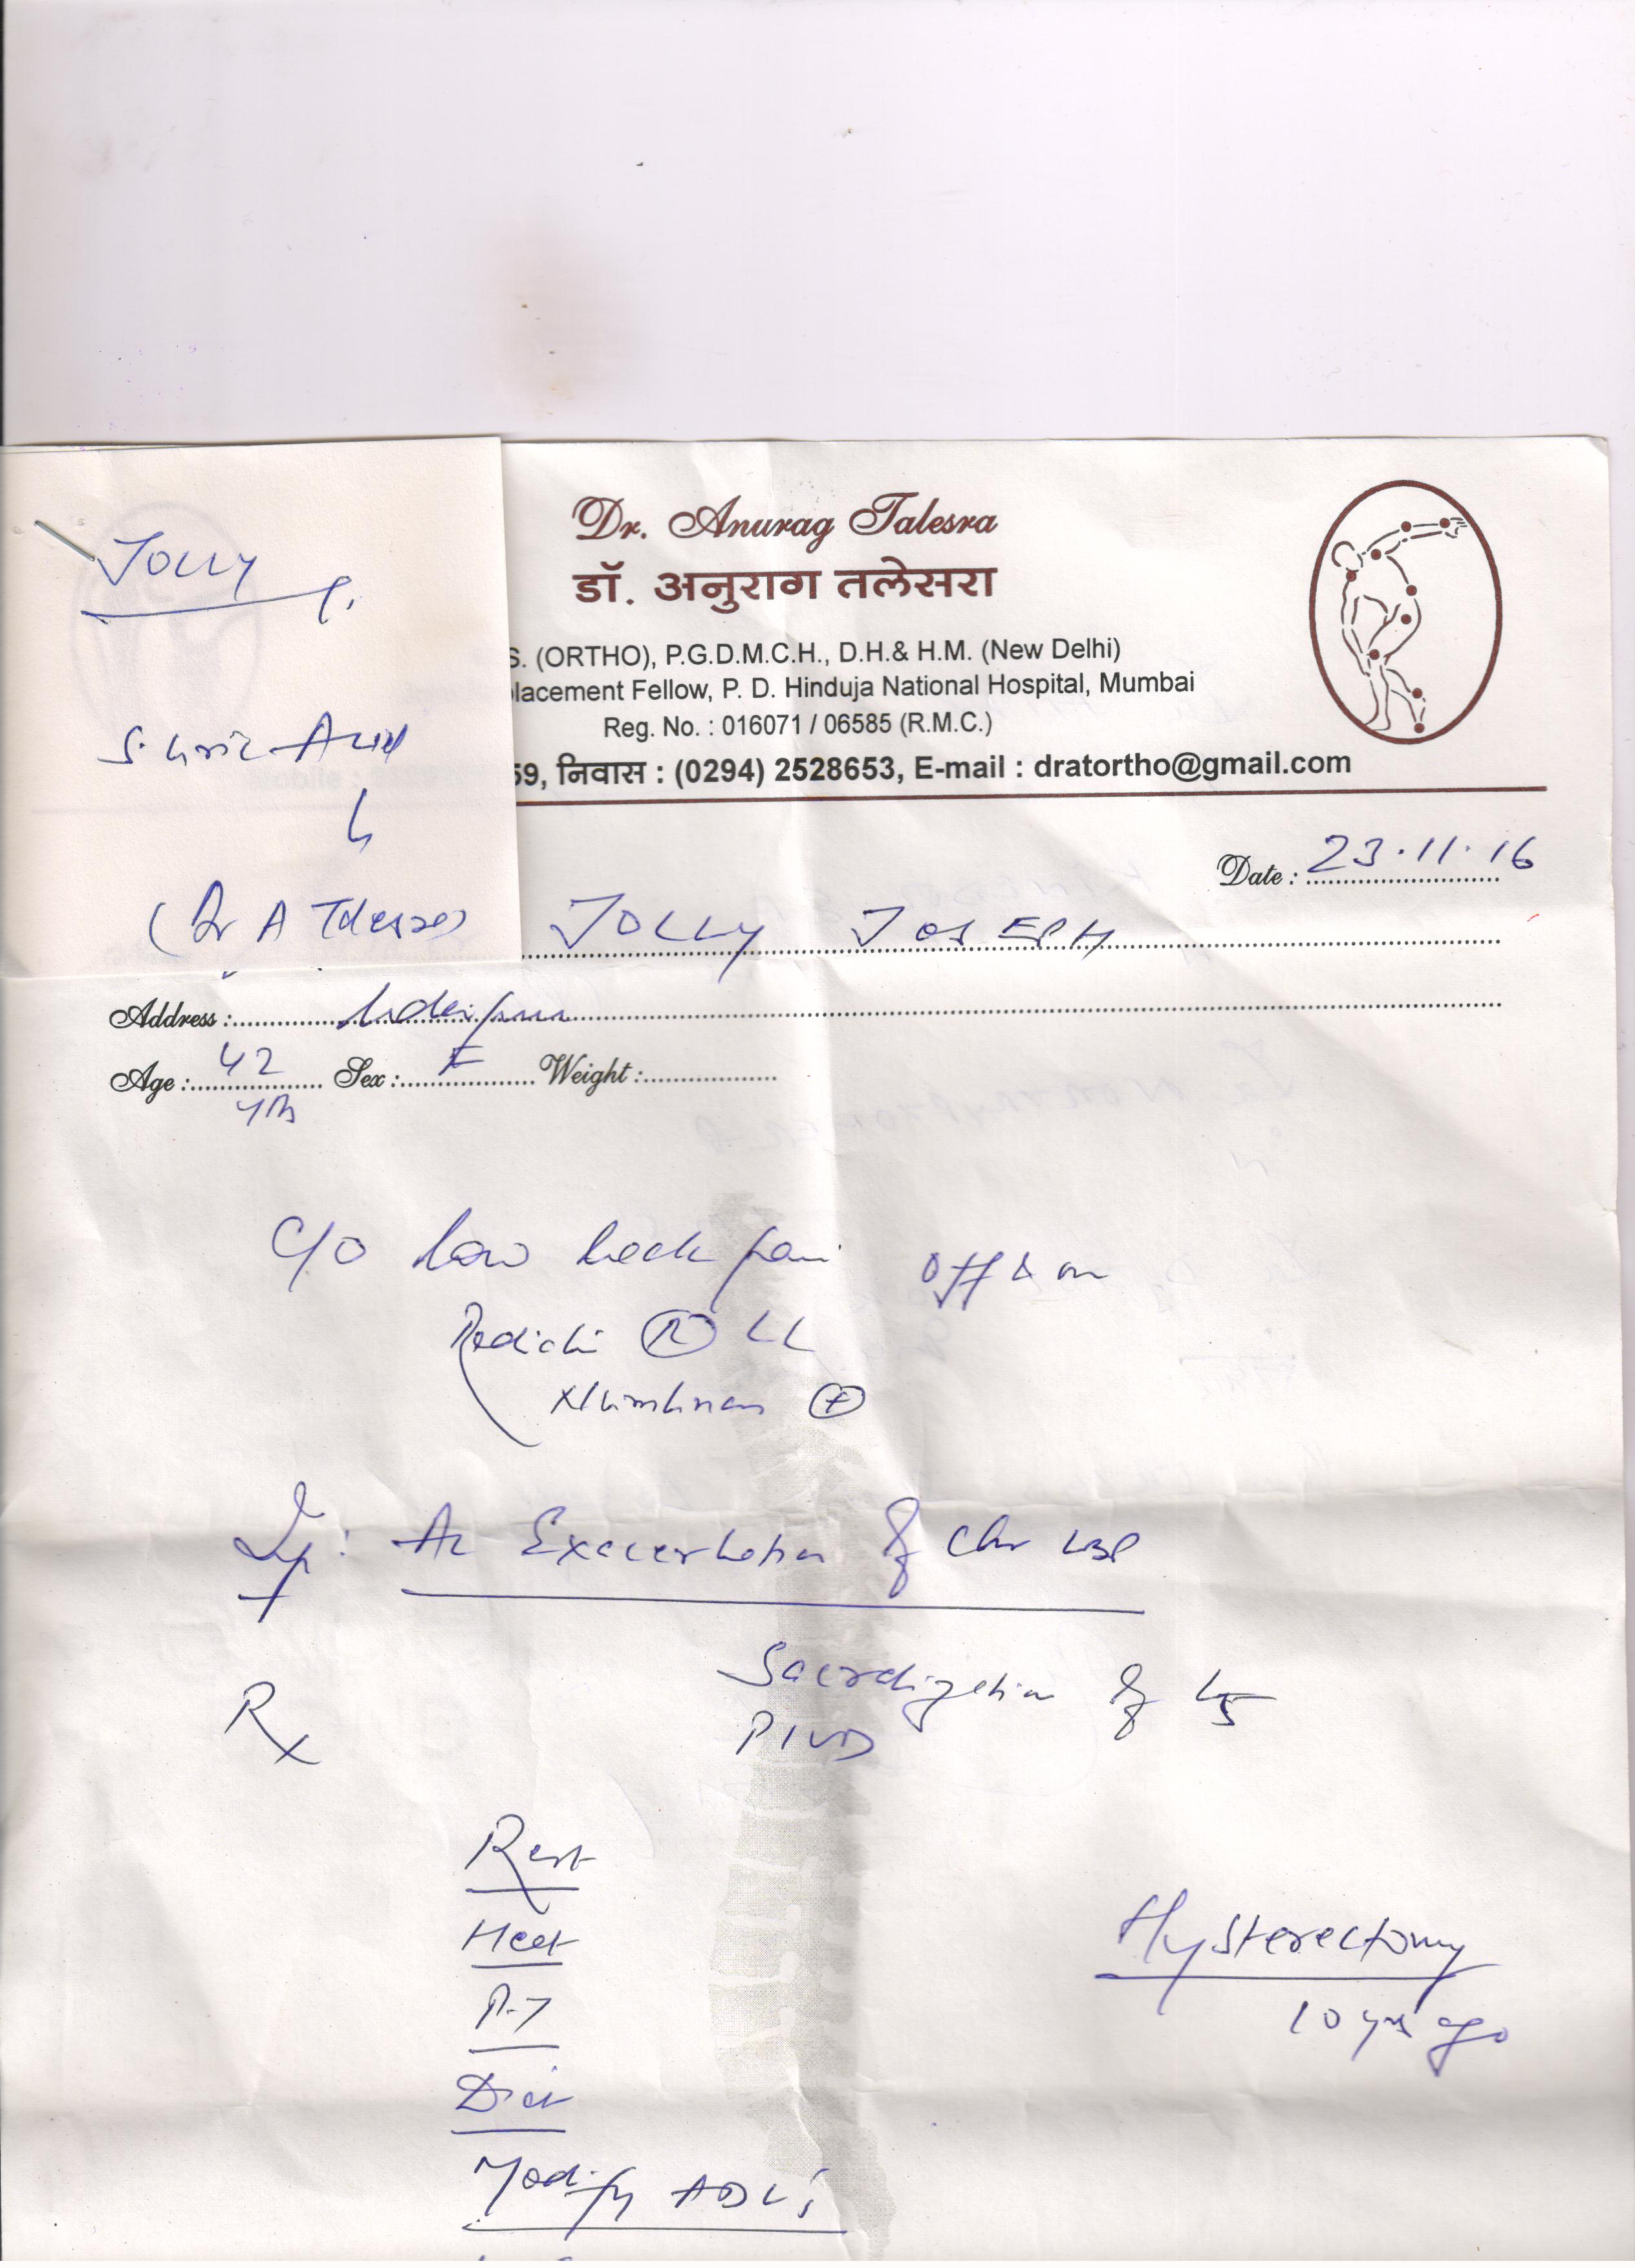 Dr. Anurag Talesra
डॉ. अनुराग तलेसरा
S. (ORTHO), P.G.D.M.C.H., D.H.& H.M. (New Delhi)
lacement Fellow, P. D. Hinduja National Hospital, Mumbai
Reg. No. : 016071 / 06585 (R.M.C.)
59, निवास : (0294) 2528653, E-mail : dratortho@gmail.com
JOLLY
S. Uric Acid
(Dr A Talesra)
Date : 23.11.16
JOLLY JOSEPH
Address : Udaipur
Age : 42 yrs Sex : F Weight :
C/O Low back pain off & on
R LL
+
Imp: Ac Exacerbation of Chr LBP
Sacralization of L5
PIVD
Rx
Rest
Heat
P.T
Diet
Modify ADL's
Hysterectomy
10 yrs ago